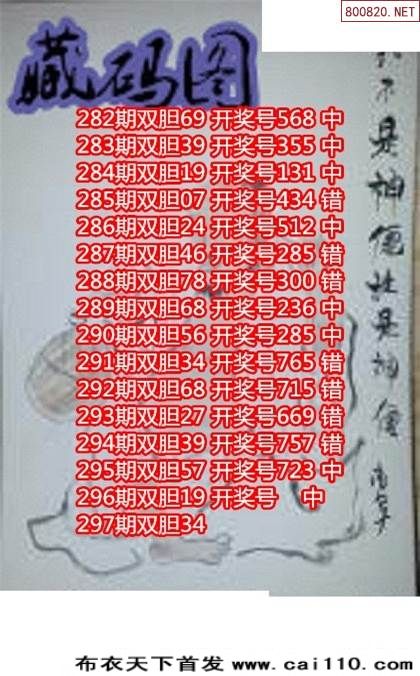 800820.NET
藏码图
282期双胆69 开奖号568 中
283期双胆39 开奖号355 中
284期双胆19 开奖号131 中
285期双胆07 开奖号434 错
286期双胆24 开奖号512 中
287期双胆46 开奖号285 错
288期双胆78 开奖号300 错
289期双胆68 开奖号236 中
290期双胆56 开奖号285 中
291期双胆34 开奖号765 错
292期双胆68 开奖号715 错
293期双胆27 开奖号669 错
294期双胆39 开奖号757 错
295期双胆57 开奖号723 中
296期双胆19 开奖号 中
297期双胆34
不是神仙胜是神仙
布衣天下首发 www.cai110.com